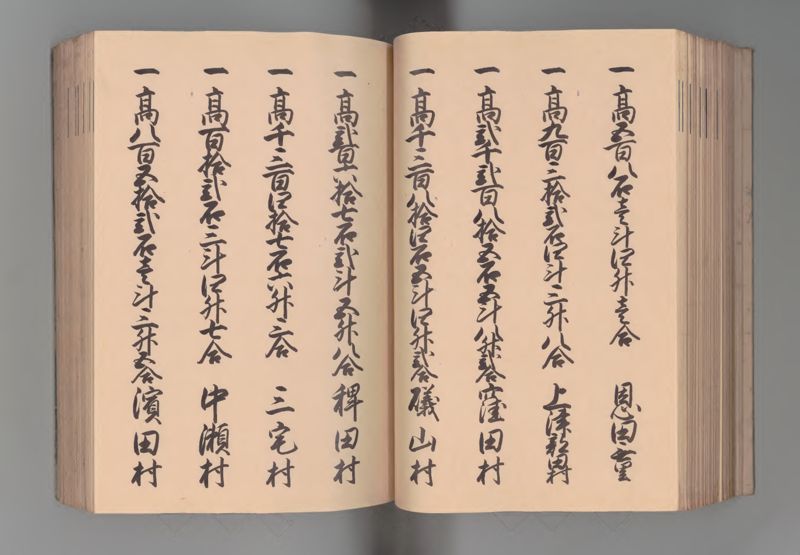 一 高五百八石壱斗四升壱合 恩田村
一 高九百三拾弐石四斗三升八合 上
一 高弐千弐百八拾五石五斗八升弐合 窪田村
一 高千三百八拾四石五斗四升弐合 礒山村
一 高弐百六拾七石弐斗五升八合 稗田村
一 高千三百四拾七石六升三合 三宅村
一 高百拾弐石三斗四升七合 中瀬村
一 高八百五拾弐石壱斗三升五合 濱田村